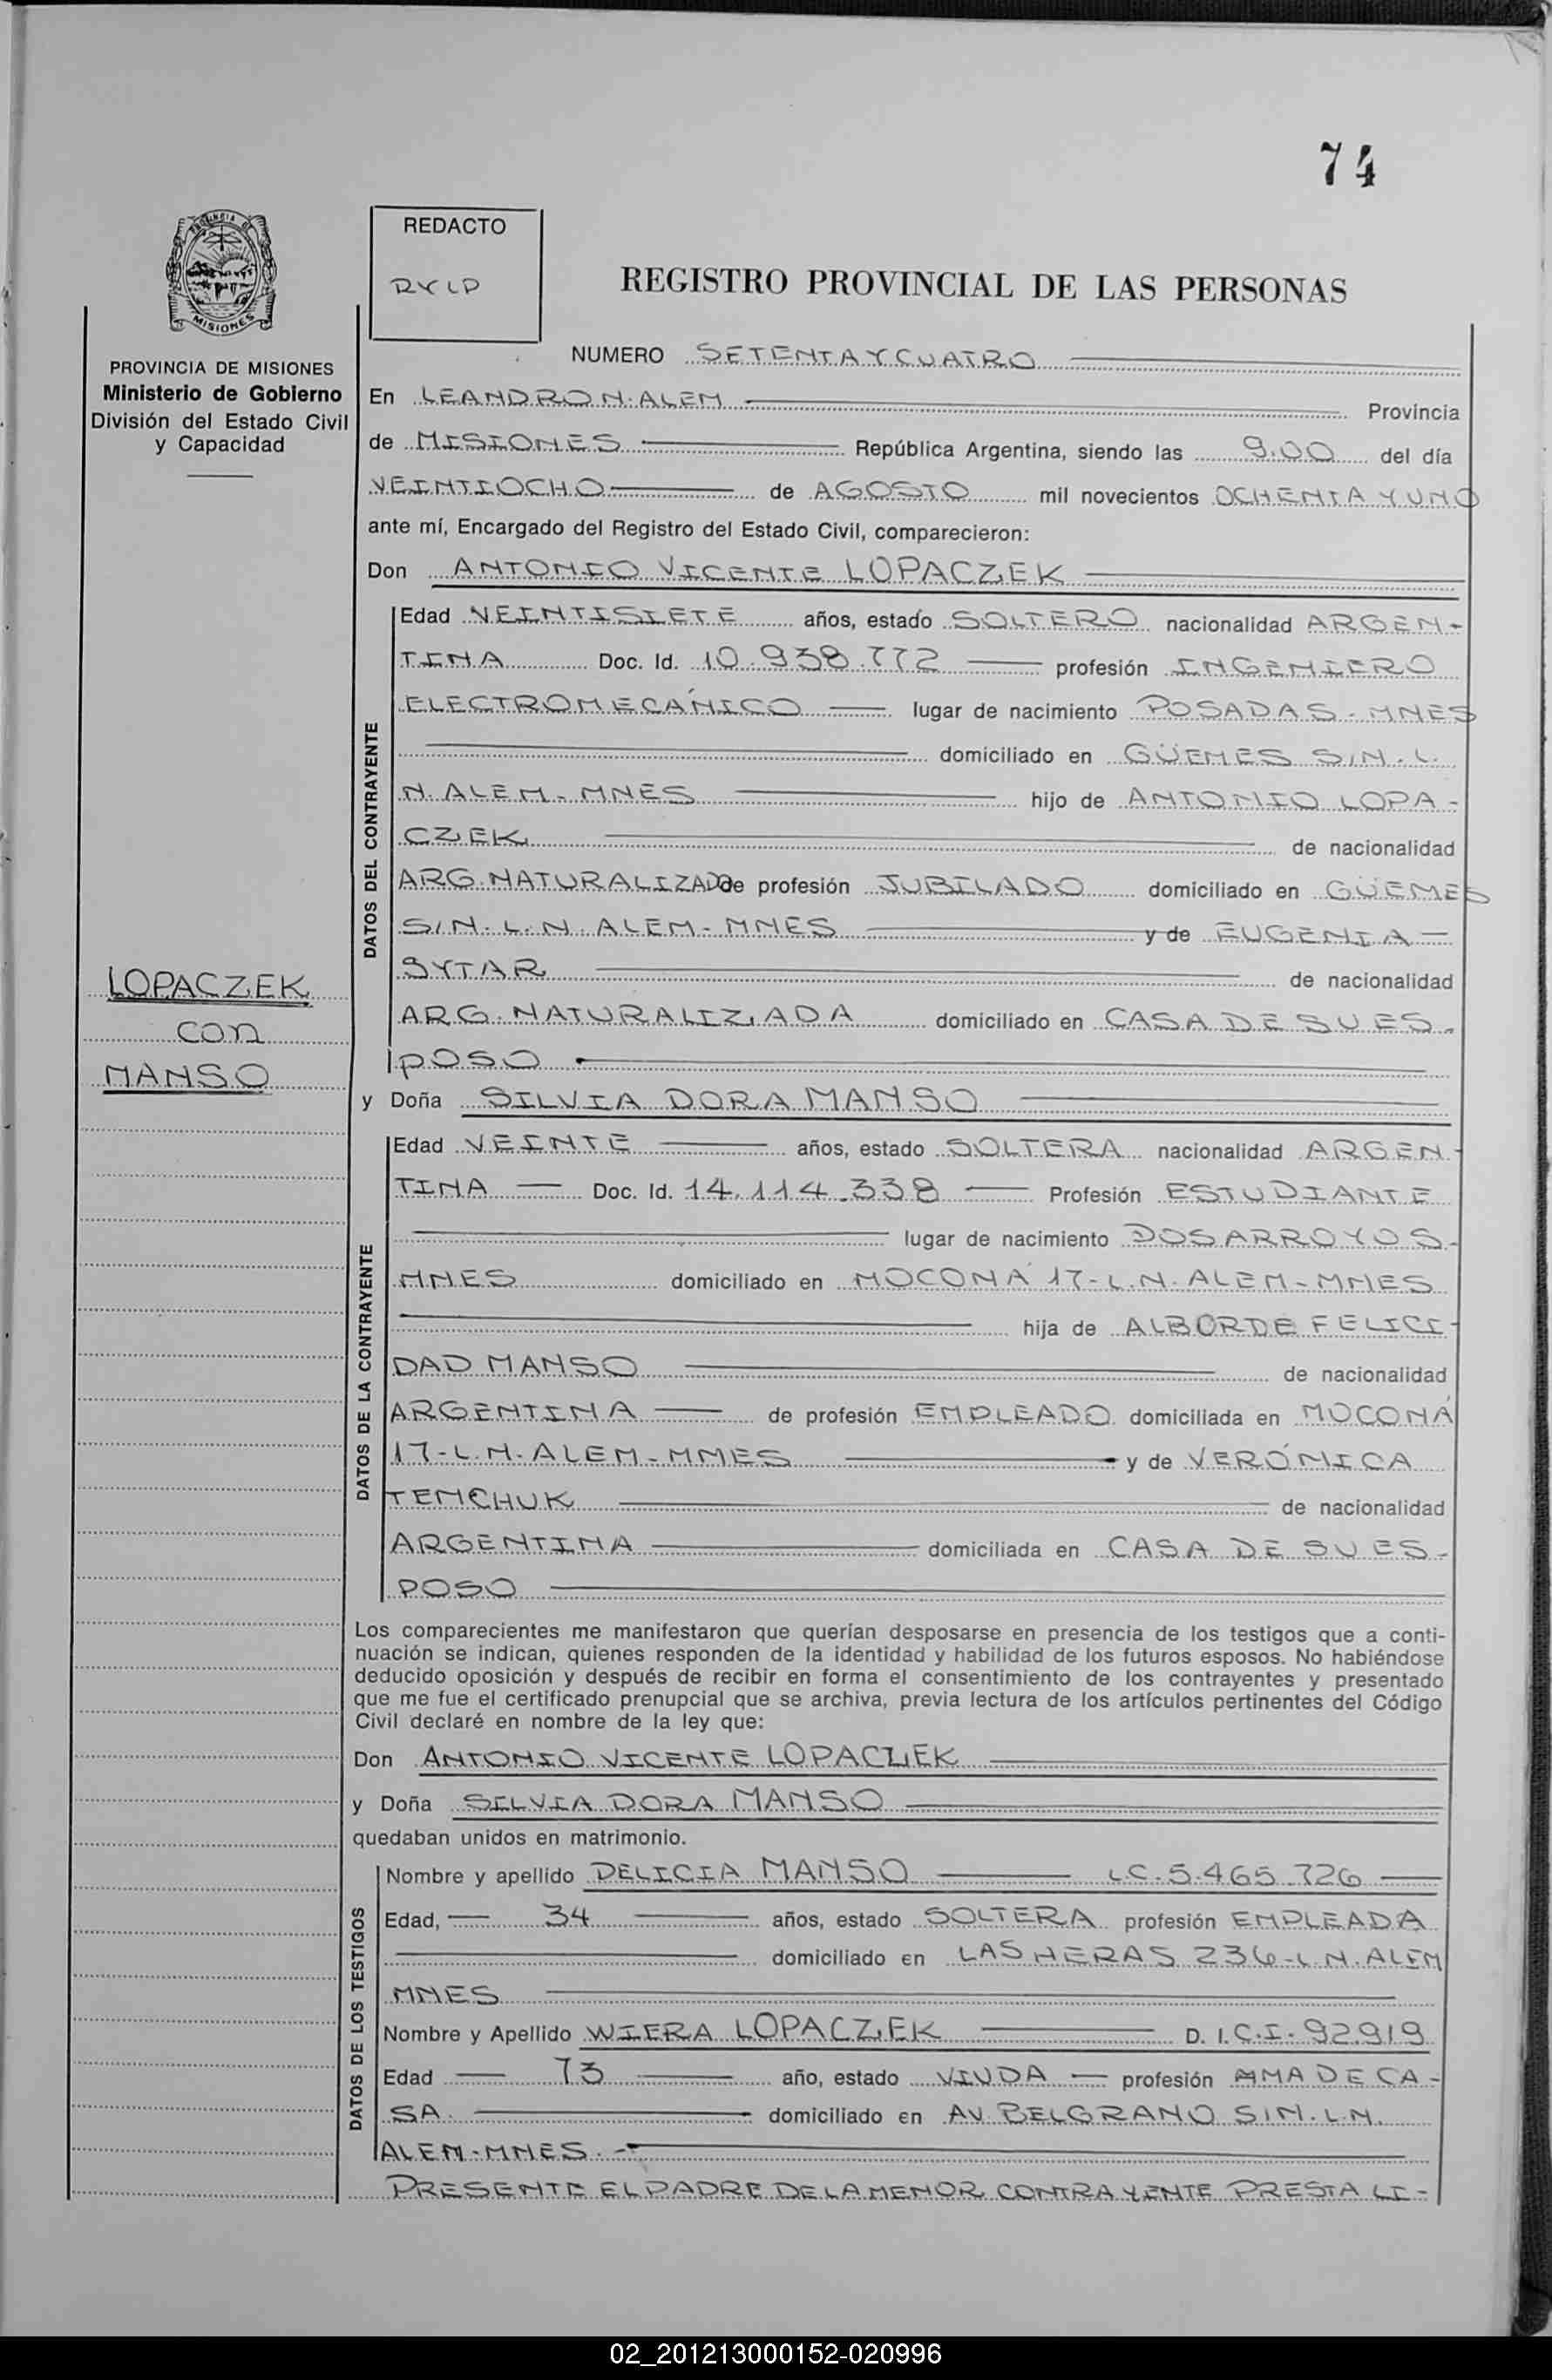 74
PROVINCIA DE MISIONES
REDACTO
RYLP
REGISTRO PROVINCIAL DE LAS PERSONAS
PROVINCIA DE MISIONES
Ministerio de Gobierno
División del Estado Civil
y Capacidad
LOPACZEK
CON
MANSO
NUMERO SETENTA Y CUATRO
En LEANDRO N. ALEM Provincia
de MISIONES República Argentina, siendo las 9.00 del día
VEINTIOCHO de AGOSTO mil novecientos OCHENTA Y UNO
ante mí, Encargado del Registro del Estado Civil, comparecieron:
Don ANTONIO VICENTE LOPACZEK
DATOS DEL CONTRAYENTE
Edad VEINTISIETE años, estado SOLTERO nacionalidad ARGEN-
TINA Doc. Id. 10.938.772 profesión INGENIERO
ELECTROMECÁNICO lugar de nacimiento POSADAS-MNES
domiciliado en GÜEMES S/N. L.
N. ALEM-MNES hijo de ANTONIO LOPA-
CZEK de nacionalidad
ARG. NATURALIZADO de profesión JUBILADO domiciliado en GÜEMES
S/N. L. N. ALEM-MNES y de EUGENIA
SYTAR de nacionalidad
ARG. NATURALIZADA domiciliado en CASA DE SU ES-
POSO
y Doña SILVIA DORA MANSO
DATOS DE LA CONTRAYENTE
Edad VEINTE años, estado SOLTERA nacionalidad ARGEN-
TINA Doc. Id. 14.114.338 Profesión ESTUDIANTE
lugar de nacimiento DOS ARROYOS-
MNES domiciliado en MOCONÁ 17-L.N. ALEM-MNES
hija de ALBORDE FELICI-
DAD MANSO de nacionalidad
ARGENTINA de profesión EMPLEADO domiciliada en MOCONÁ
17-L.N. ALEM-MNES y de VERÓNICA
TEMCHUK de nacionalidad
ARGENTINA domiciliada en CASA DE SU ES-
POSO
Los comparecientes me manifestaron que querían desposarse en presencia de los testigos que a conti-
nuación se indican, quienes responden de la identidad y habilidad de los futuros esposos. No habiéndose
deducido oposición y después de recibir en forma el consentimiento de los contrayentes y presentado
que me fue el certificado prenupcial que se archiva, previa lectura de los artículos pertinentes del Código
Civil declaré en nombre de la ley que:
Don ANTONIO VICENTE LOPACZEK
y Doña SILVIA DORA MANSO
quedaban unidos en matrimonio.
DATOS DE LOS TESTIGOS
Nombre y apellido DELICIA MANSO L.C. 5.465.726
Edad, 34 años, estado SOLTERA profesión EMPLEADA
domiciliado en LAS HERAS 236-L.N. ALEM
MNES
Nombre y Apellido WIERA LOPACZEK D. I. C.I. 92.919
Edad 73 año, estado VIUDA profesión AMA DE CA-
SA domiciliado en AV. BELGRANO S/N. L.N.
ALEM-MNES.
PRESENTE EL PADRE DE LA MENOR CONTRAYENTE PRESTA LI-
02_201213000152-020996